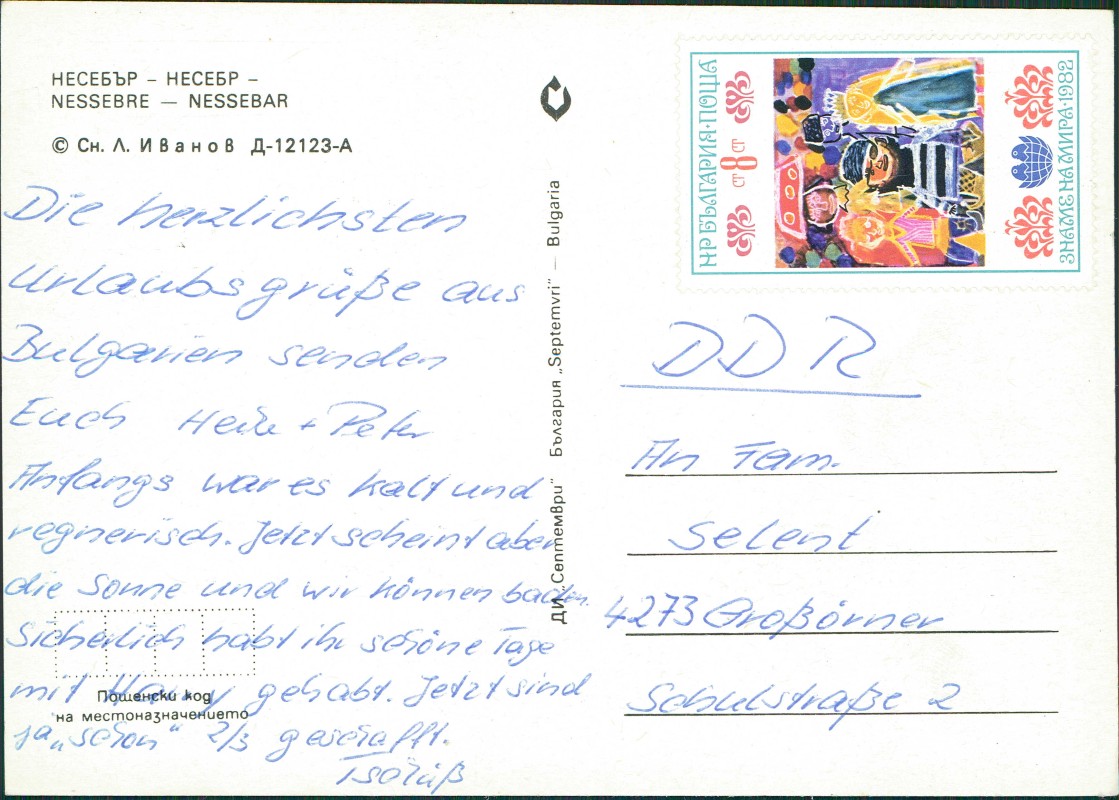 НЕСЕБЪР – НЕСЕБР –
NESSEBRE — NESSEBAR
© Сн. Л. Иванов Д-12123-А
Die herzlichsten
Urlaubsgrüße aus
Bulgarien senden
Euch Heike + Peter
Anfangs war es kalt und
regnerisch. Jetzt scheint aber
die Sonne und wir können baden.
Sicherlich habt ihr schöne Tage
mit gehabt. Jetzt sind
ja „schon“ 2/3 geschafft.
Tschüß
Пощенски код
на местоназначението
ДИ „Септември“ България „Septemvri“ — Bulgaria
НР БЪЛГАРИЯ·ПОЩА
СТ 8 СТ
ЗНАМЕ НА МИРА·1982
DDR
An Fam.
Selent
4273 Großörner
Schulstraße 2